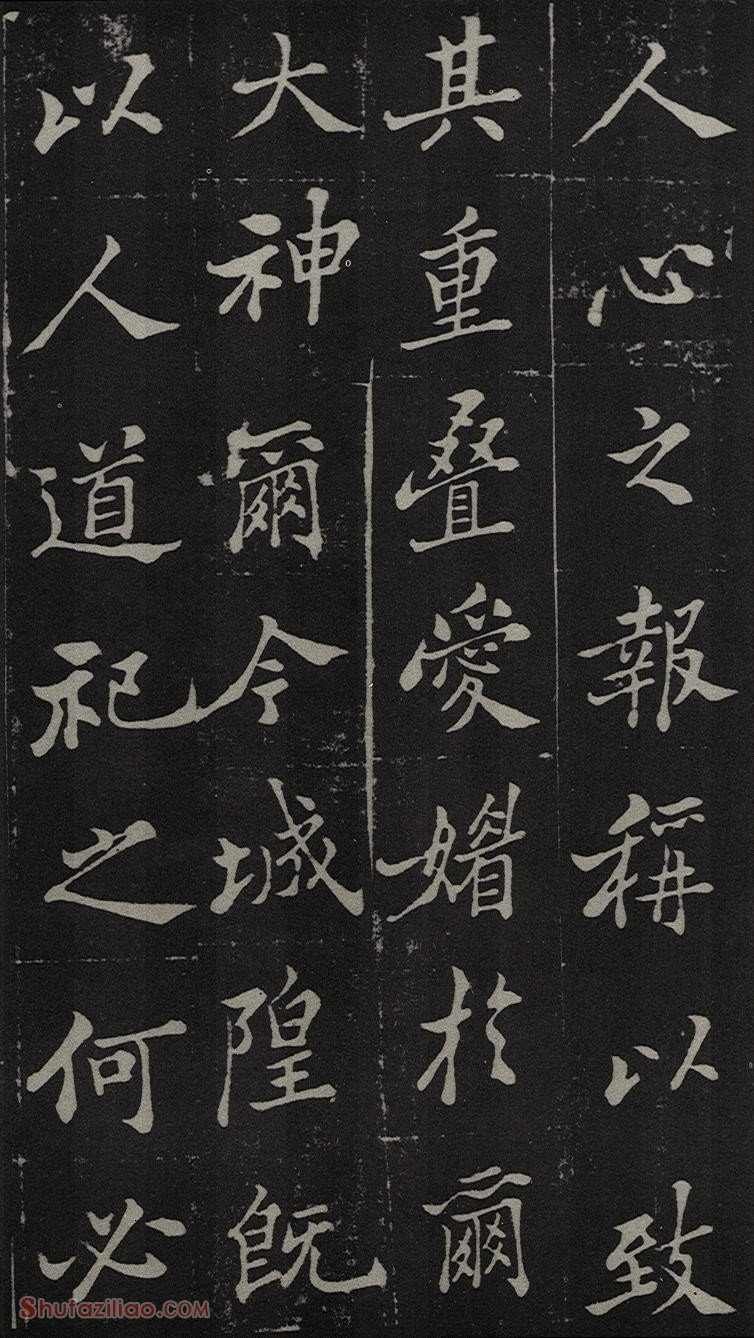 人心之報稱以致
其重疊愛媢於爾
大神爾今城隍既
以人道祀之何必
Shufaziliao.COM